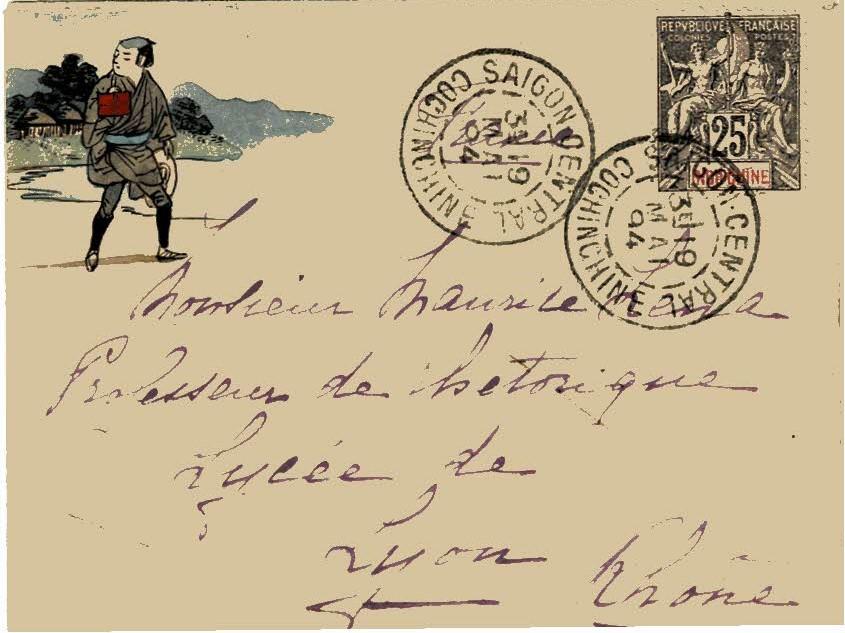 REPVBLIQVE FRANÇAISE
COLONIES POSTES
25
INDO-CHINE
SAIGON CENTRAL
3E 19
MAI
94
COCHINCHINE
SAIGON CENTRAL
3E 19
MAI
94
COCHINCHINE
Monsieur Maurice
Professeur de Rhetorique
Lycée de
Lyon
Rhône